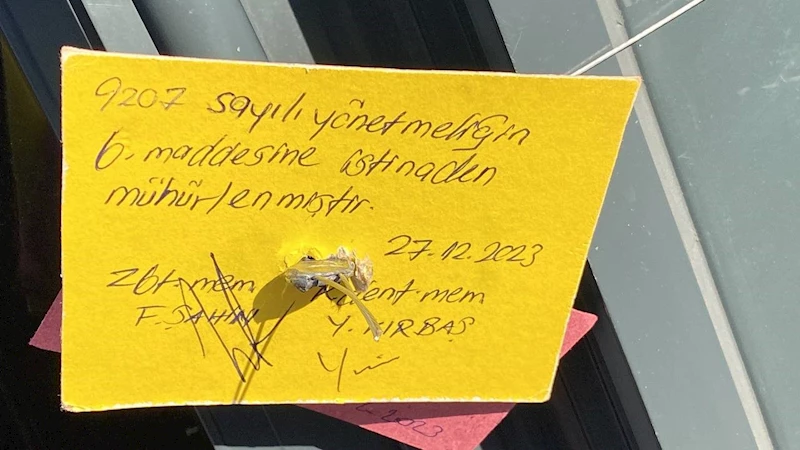 9207 sayılı yönetmeliğin
6. maddesine istinaden
mühürlenmiştir.
27.12.2023
Zbt. mem
F. ŞAHİN
Kdent. mem
Y. KIRBAŞ
2023